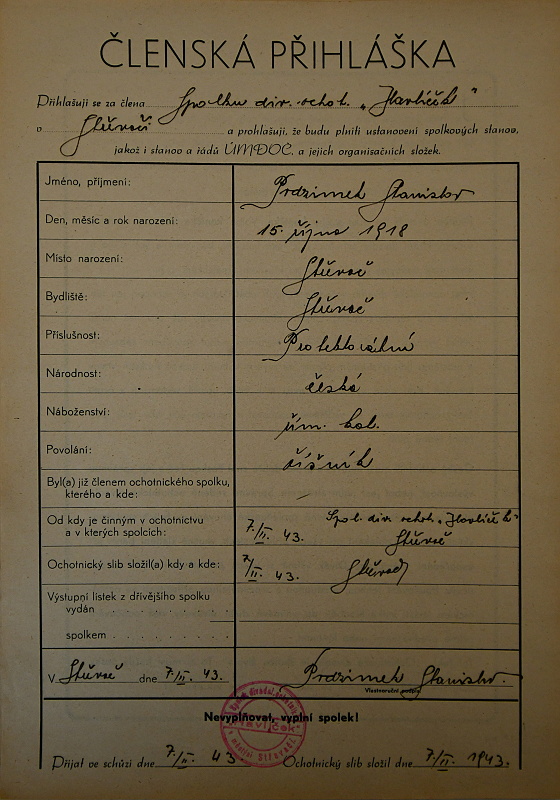 ČLENSKÁ PŘIHLÁŠKA
Přihlašuji se za člena Spolku div. ochot. „Havlíček"
v a prohlašuji, že budu plniti ustanovení spolkových stanov,
jakož i stanov a řádů ÚMDOČ. a jejich organisačních složek.
Jméno, příjmení: Prdzimek Stanislav
Den, měsíc a rok narození: 15. října 1918
Místo narození:
Bydliště:
Příslušnost: Protektorátní
Národnost: česká
Náboženství: řím. kat.
Povolání: číšník
Byl(a) již členem ochotnického spolku,
kterého a kde:
Od kdy je činným v ochotnictvu 7/II. 43. Spol. div. ochot. „Havlíček"
a v kterých spolcích:
Ochotnický slib složil(a) kdy a kde: 7/II. 43.
Výstupní lístek z dřívějšího spolku
vydán . . . . . . . . . .
spolkem . . . . . . . . . .
V dne 7/II. 43. Prdzimek Stanislav.
Vlastnoruční podpis
Nevyplňovat, vyplní spolek!
Přijat ve schůzi dne 7/II. 43. Ochotnický slib složil dne 7/II. 1943.